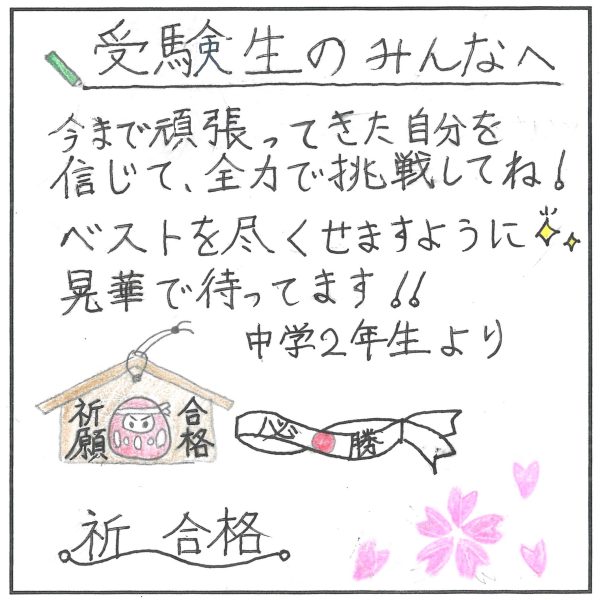 受験生のみんなへ
今まで頑張ってきた自分を
信じて、全力で挑戦してね!
ベストを尽くせますように
晃華で待ってます!!
中学2年生より
祈願
合格
必勝
祈 合格